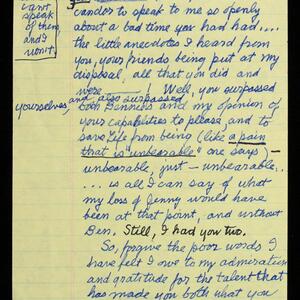 can't
speak
of them
and I
won't.
candor to speak to me so openly
about a bad time you had had....
the little anecdotes I heard from
you, your friends being put at my
disposal, all that you did and
were ! Well, you surpassed
yourselves, and also surpassed
both and my opinion of
your capabilities to please, and to
save life from being (like a pain
that is "unbearable" one says -
unbearable, just - unbearable..
... is all I can say of what
my loss of Jenny would have
been at that point, and without
Ben. Still, I had you two.
So, forgive the poor words I
have felt I owe to my admiration
and gratitude for the talent that
has made you both what you